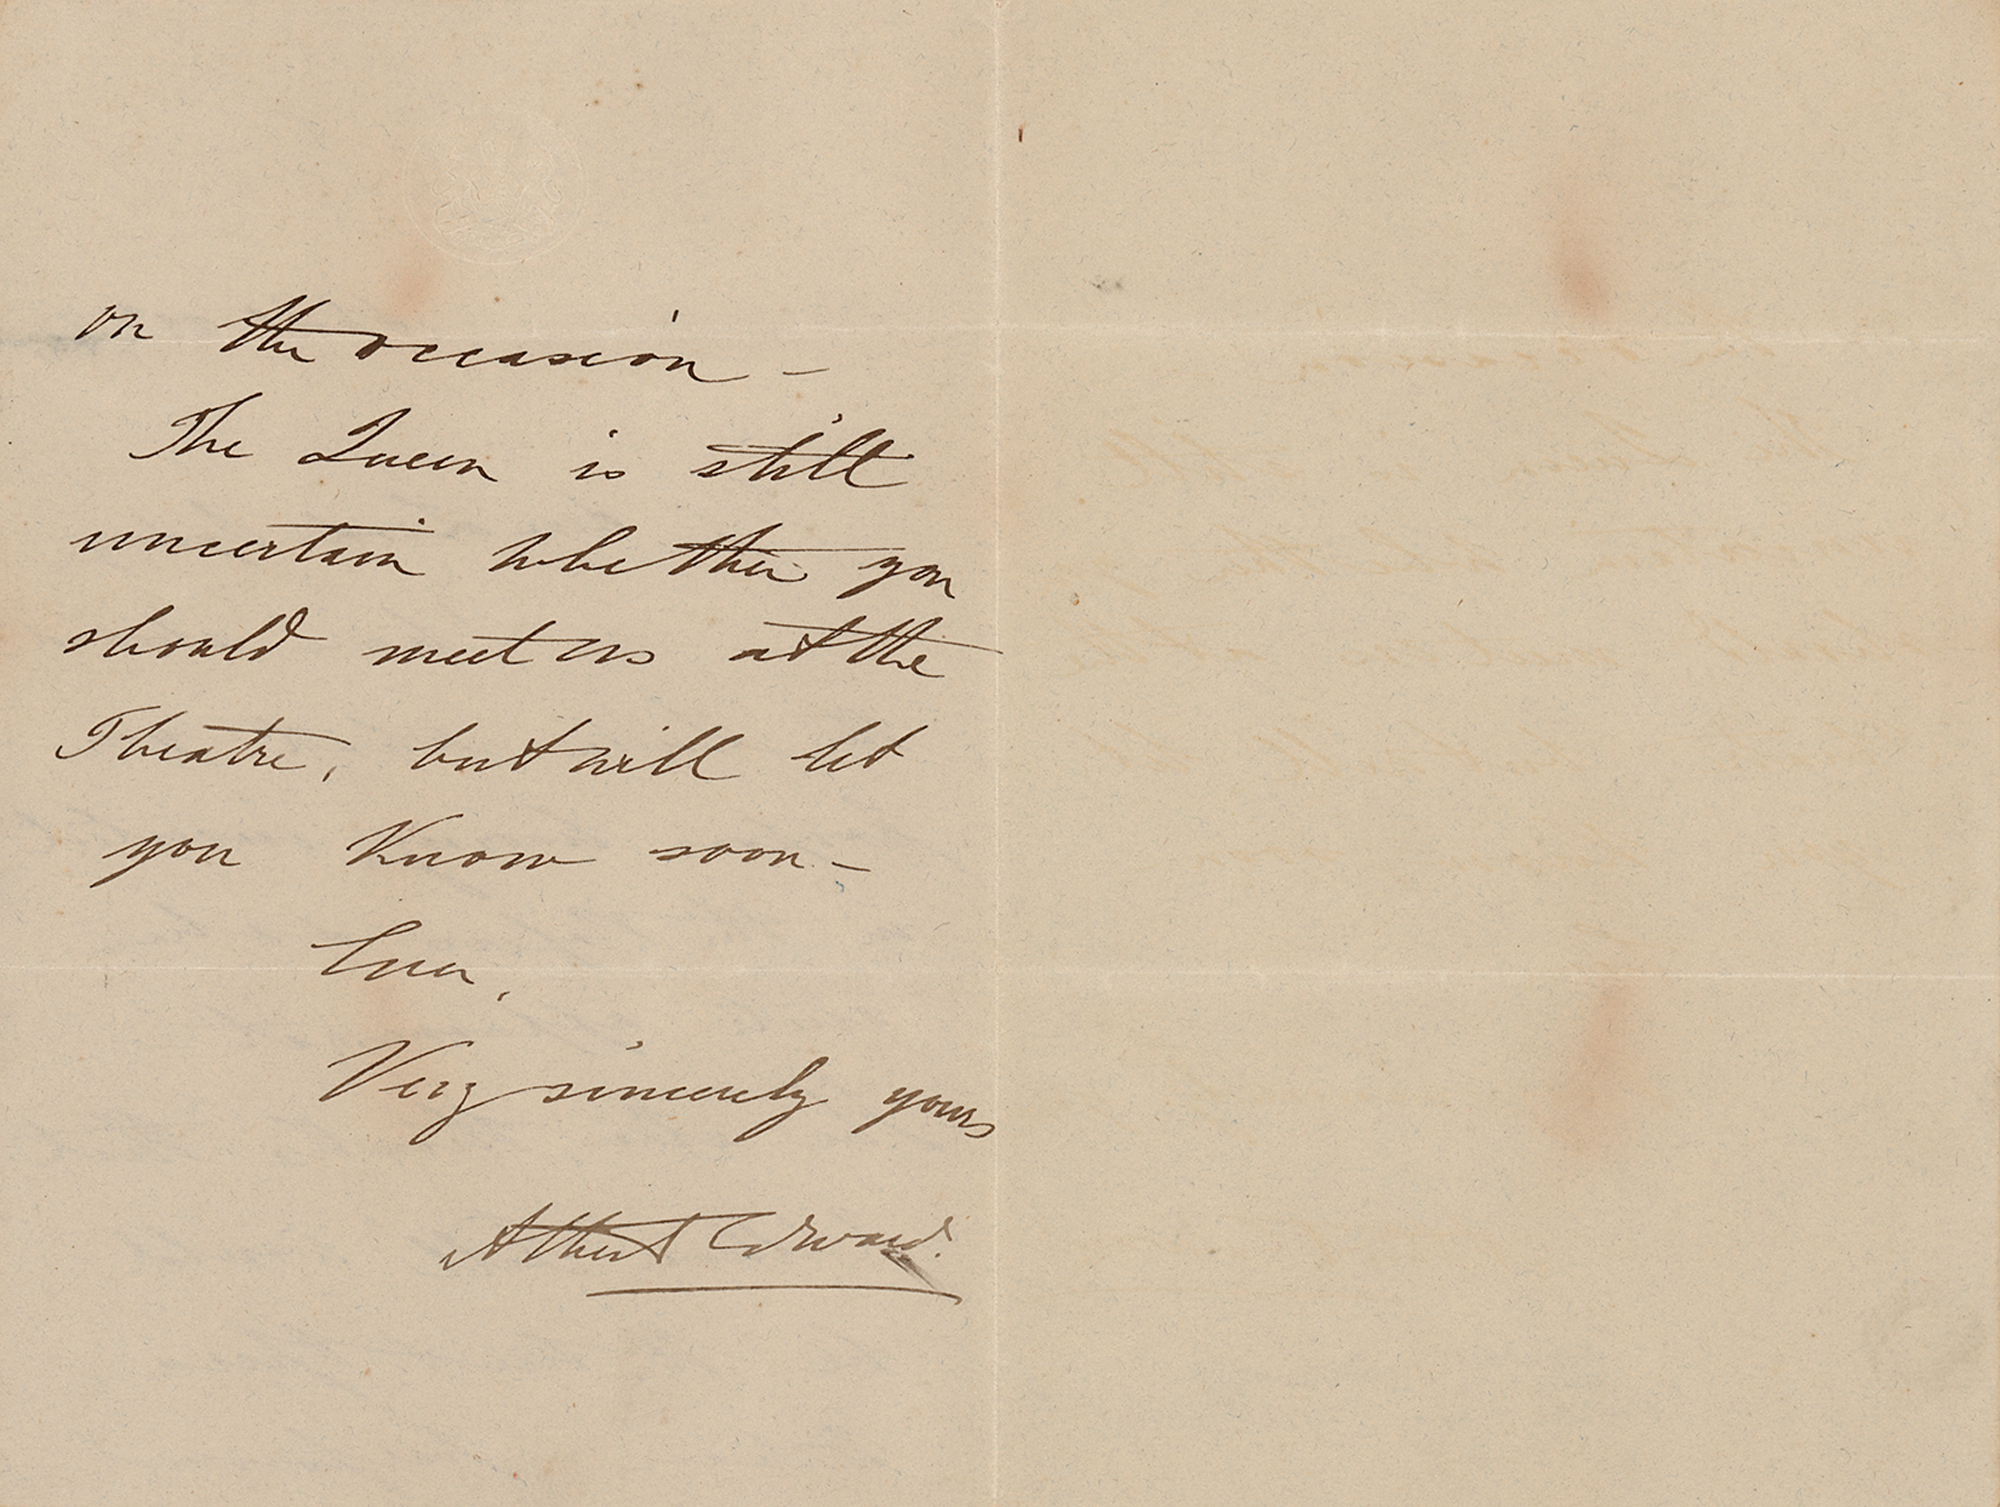 on the occasion –
The Queen is still
uncertain whether you
should meet us at the
Theatre, but will let
you Know soon –
Ever,
Very sincerely yours
Albert Edward.